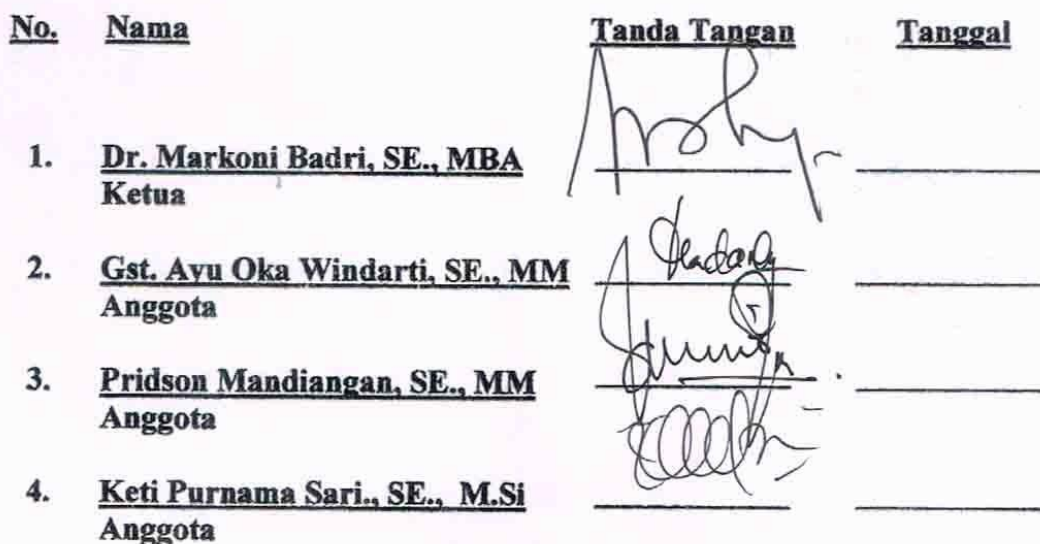 No. Nama Tanda Tangan Tanggal
1. Dr. Markoni Badri, SE., MBA
Ketua
2. Gst. Ayu Oka Windarti, SE., MM
Anggota
3. Pridson Mandiangan, SE., MM
Anggota
4. Keti Purnama Sari., SE., M.Si
Anggota